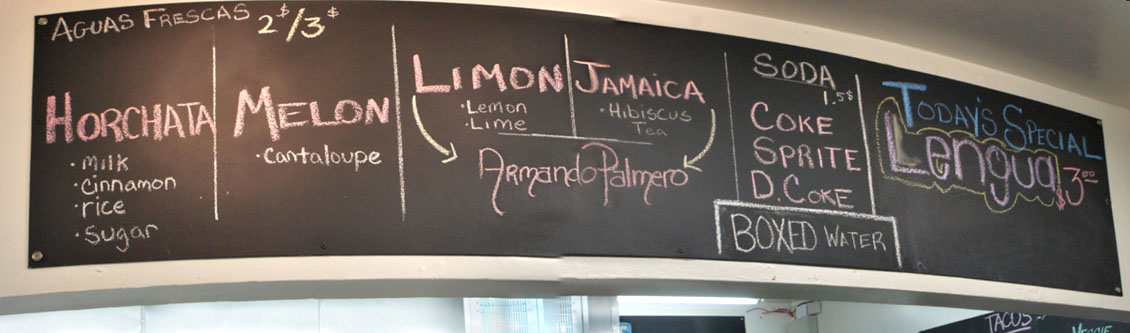 AGUAS FRESCAS 2$/3$
HORCHATA
· Milk
· Cinnamon
· rice
· Sugar
MELON
· Cantaloupe
LIMON
· Lemon
· Lime
JAMAICA
· Hibiscus
Tea
Armando Palmero
SODA
1.5$
COKE
SPRITE
D. COKE
BOXED WATER
TODAY'S SPECIAL
Lengua $3.00
TACOS
VEGGIE